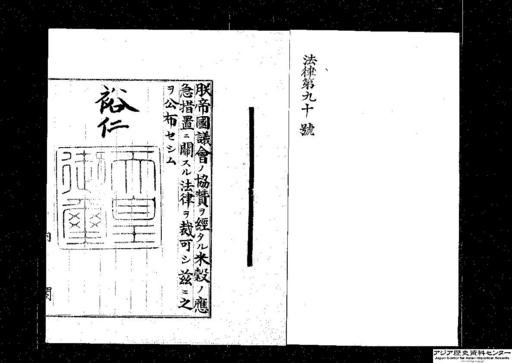 法律第九十號
朕帝國議會ノ協贊ヲ經タル米穀ノ應
急措置ニ關スル法律ヲ裁可シ茲ニ之
ヲ公布セシム
裕仁
天皇
御璽
内閣
アジア歴史資料センター
Japan Center for Asian Historical Records